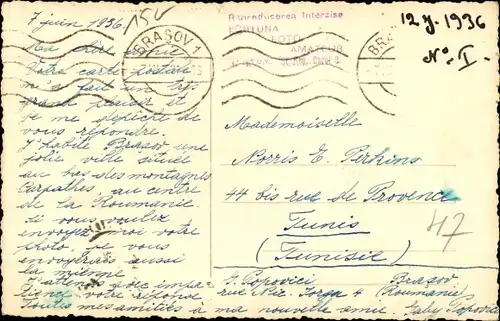 7 juin 1936.
Ma chère amie
Votre carte postale
m'a fait un très
grand plaisir et
je me dépêche de
vous répondre.
J'habite Brasov une
jolie ville située
au bas des montagnes
Carpathes, au centre
de la Roumanie.
Si vous voulez
envoyez moi votre
photo, je vous
enverrais aussi
la mienne.
J'attends avec impa-
tience votre réponse
Toutes mes amitiés à ma nouvelle amie. Gaby Popovici
150
BRASOV 1
Reproducerea Interzisa
FORTUNA
FOTO
AMATEUR
BRAȘOV
12 J. 1936
No. I.
Mademoiselle
Norris E. Perkins
44 bis rue de Provence
Tunis
(Tunisie)
47
G. Popovici Brasov
rue Nic. Iorga 4 (Roumanie)